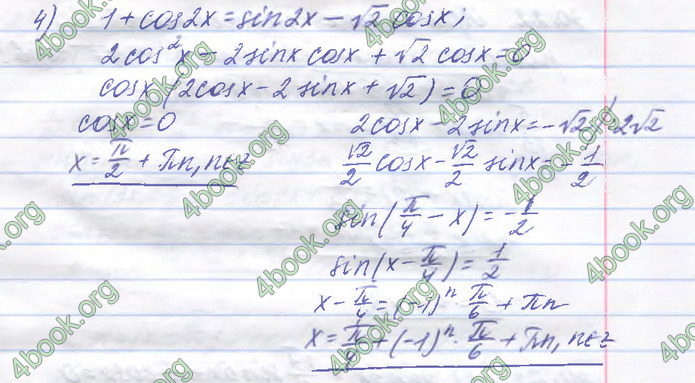 4) 1 + cos2x = sin2x - √2 cosx;
2cos²x - 2sinx cosx + √2 cosx = 0
cosx (2cosx - 2sinx + √2) = 0
cosx = 0
x = π/2 + πn, n∈z
2cosx - 2sinx = -√2 | : 2√2
√2/2 cosx - √2/2 sinx = -1/2
sin(π/4 - x) = -1/2
sin(x - π/4) = 1/2
x - π/4 = (-1)ⁿ π/6 + πn
x = π/4 + (-1)ⁿ · π/6 + πn, n∈z
4book.org
4book.org
4book.org
4book.org
4book.org
4book.org
4book.org
4book.org
4book.org
4book.org
4book.org